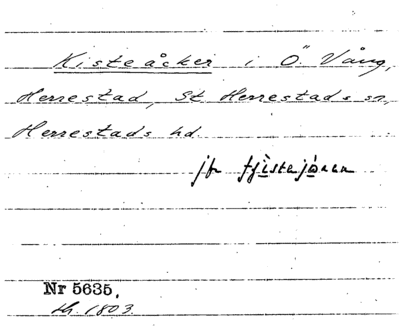 Kisteåcker i Ö. Vång,
Herrestad, St Herrestads sn,
Herrestads hd.
jfr
Nr 5635.
1803.